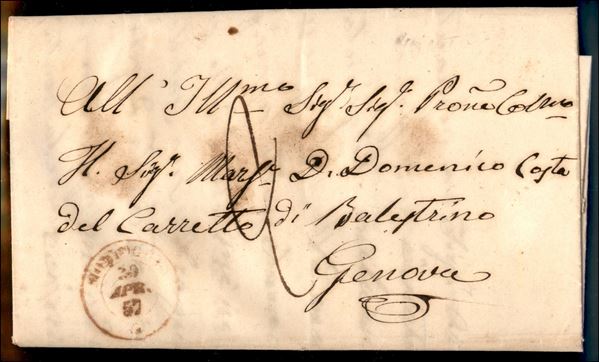 All' Ill.mo Sig.r Sig.r Proñe Col.mo
Il Sig.r March.e D. Domenico Costa
del Carretto di Balestrino
Genova
2
29
APR.
57